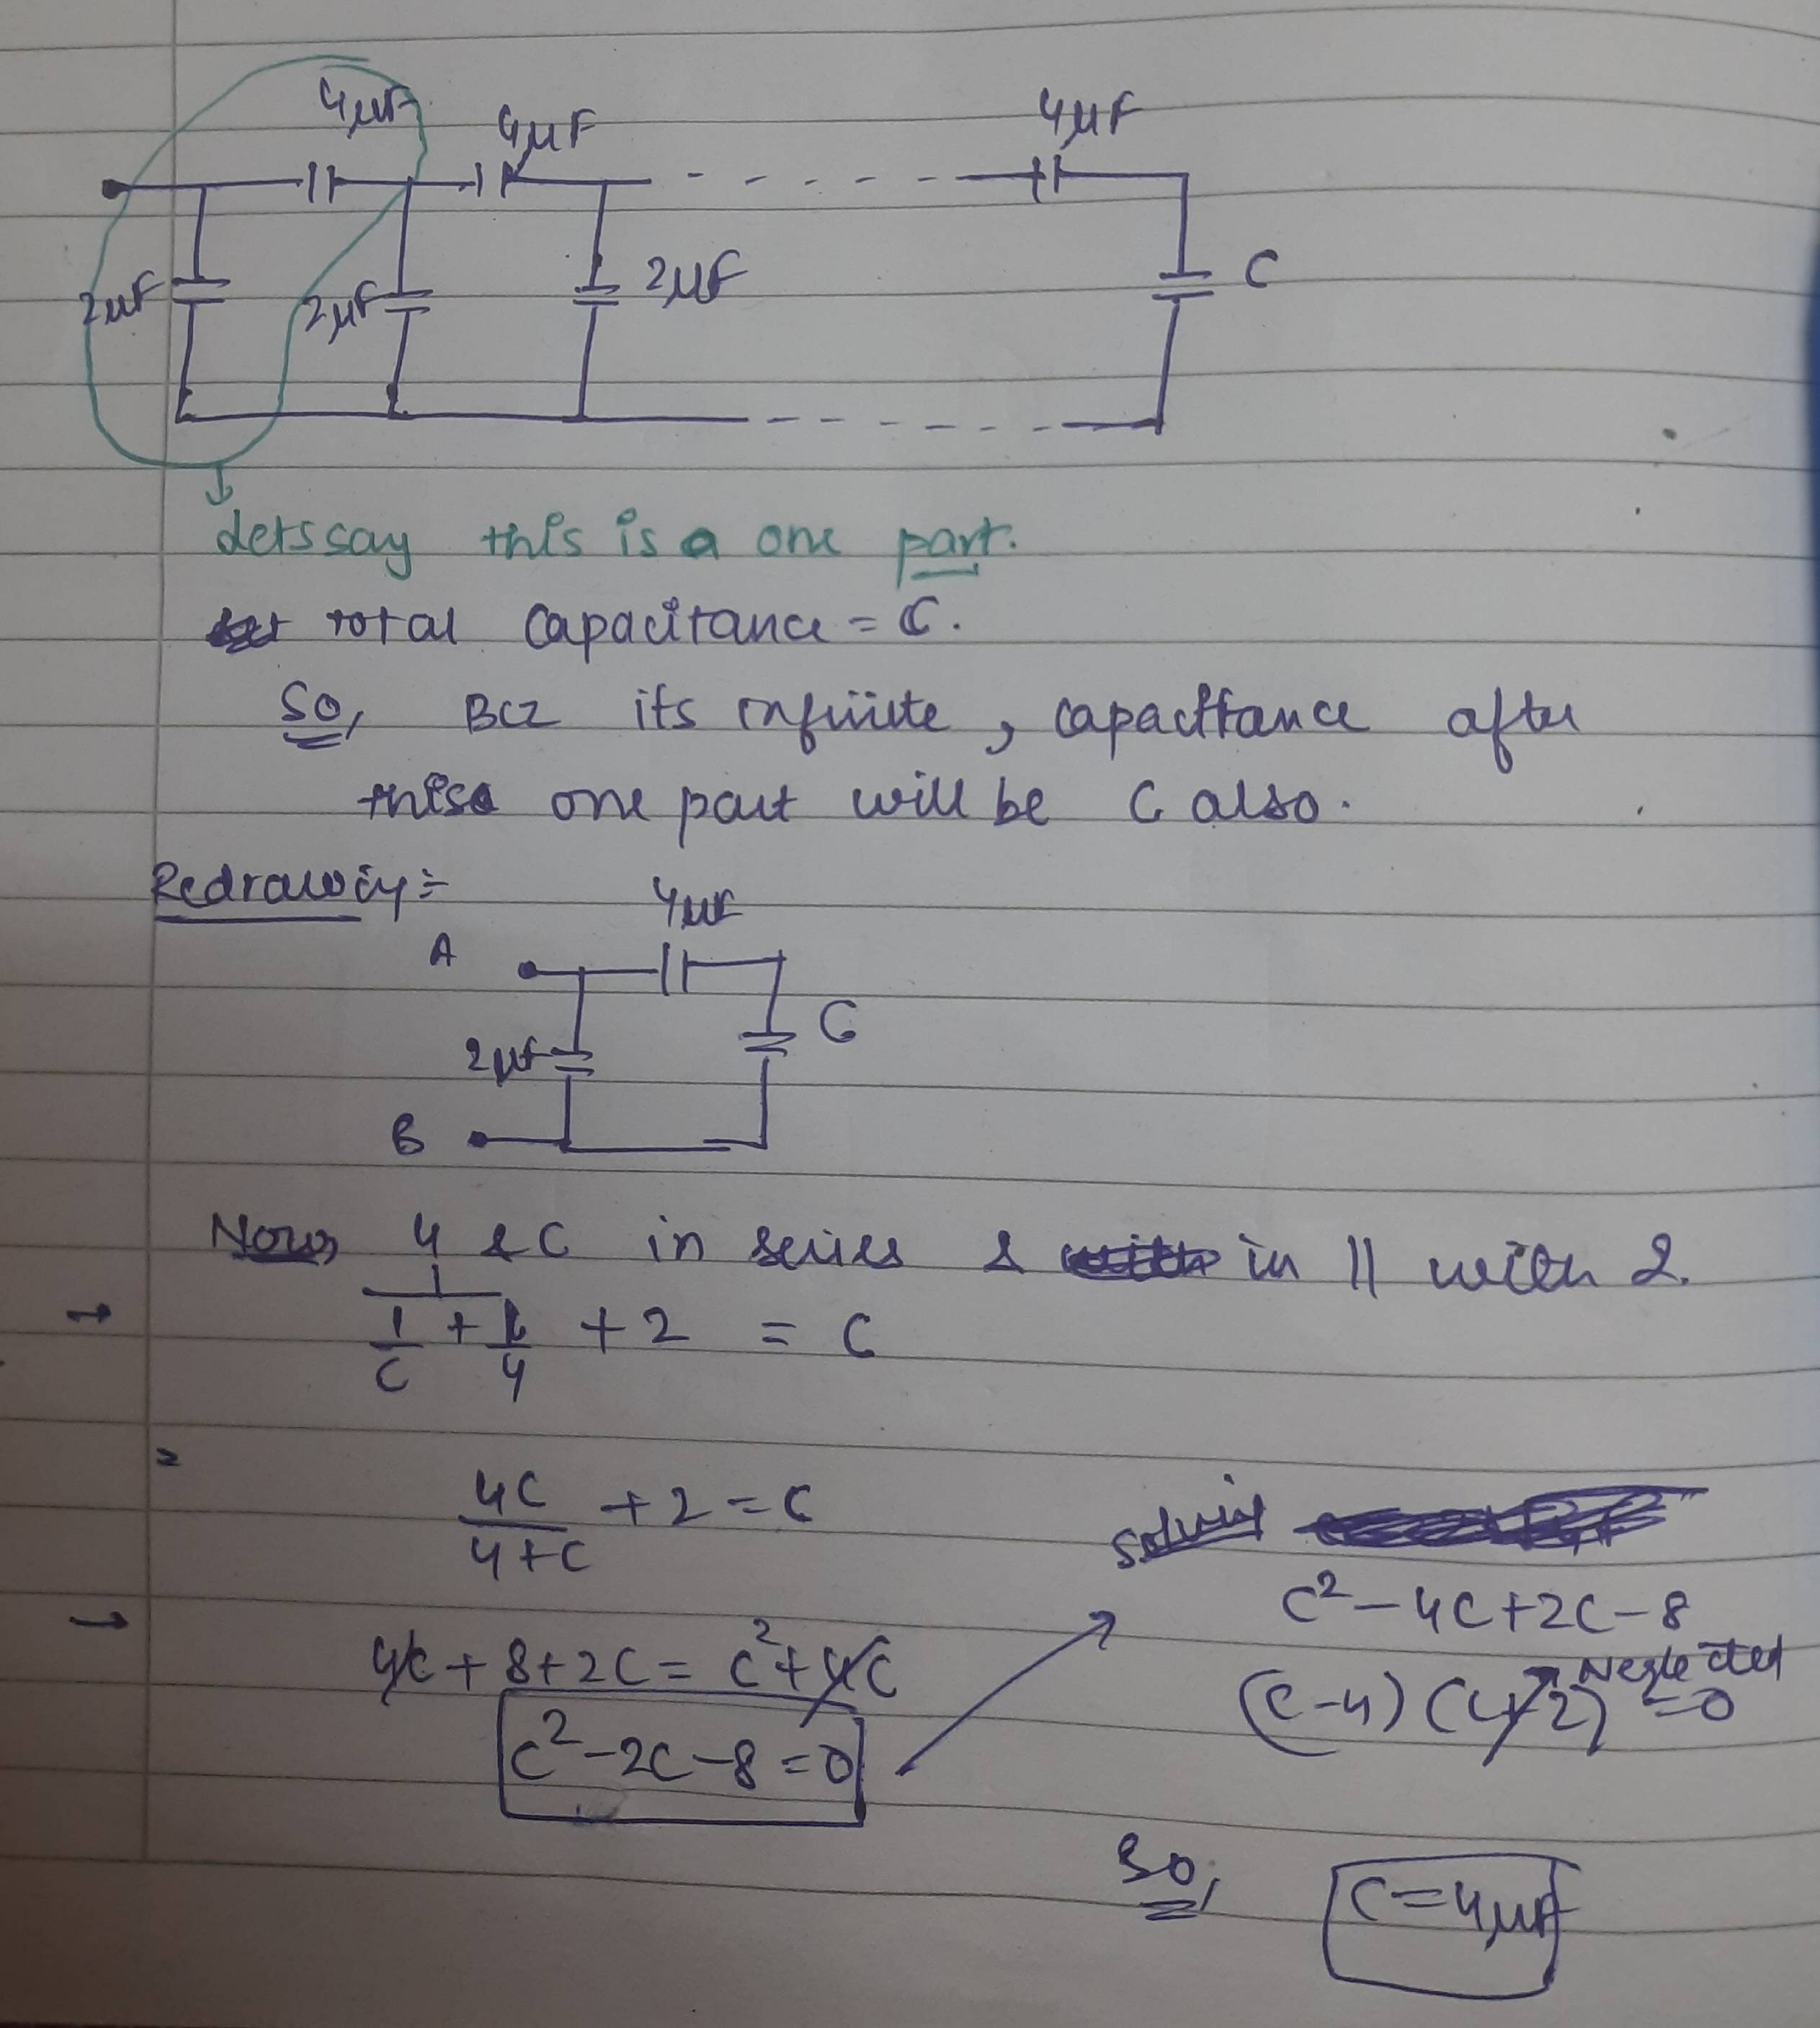 4μF
4μF
4μF
2μF
2μF
2μF
C
Lets say this is a one part.
total capacitance = C.
So, Bcz its infinite, capacitance after
these one part will be C also.
Redrawing =
4μF
A
2μf
C
B
Now, 4 & C in series & in || with 2.
1/(1/C + 1/4) + 2 = C
4C/(4+C) + 2 = C
4C + 8 + 2C = C² + 4C
C² - 2C - 8 = 0
Solving
C² - 4C + 2C - 8
Neglected
(C-4) (C+2) = 0
So,
C = 4μF